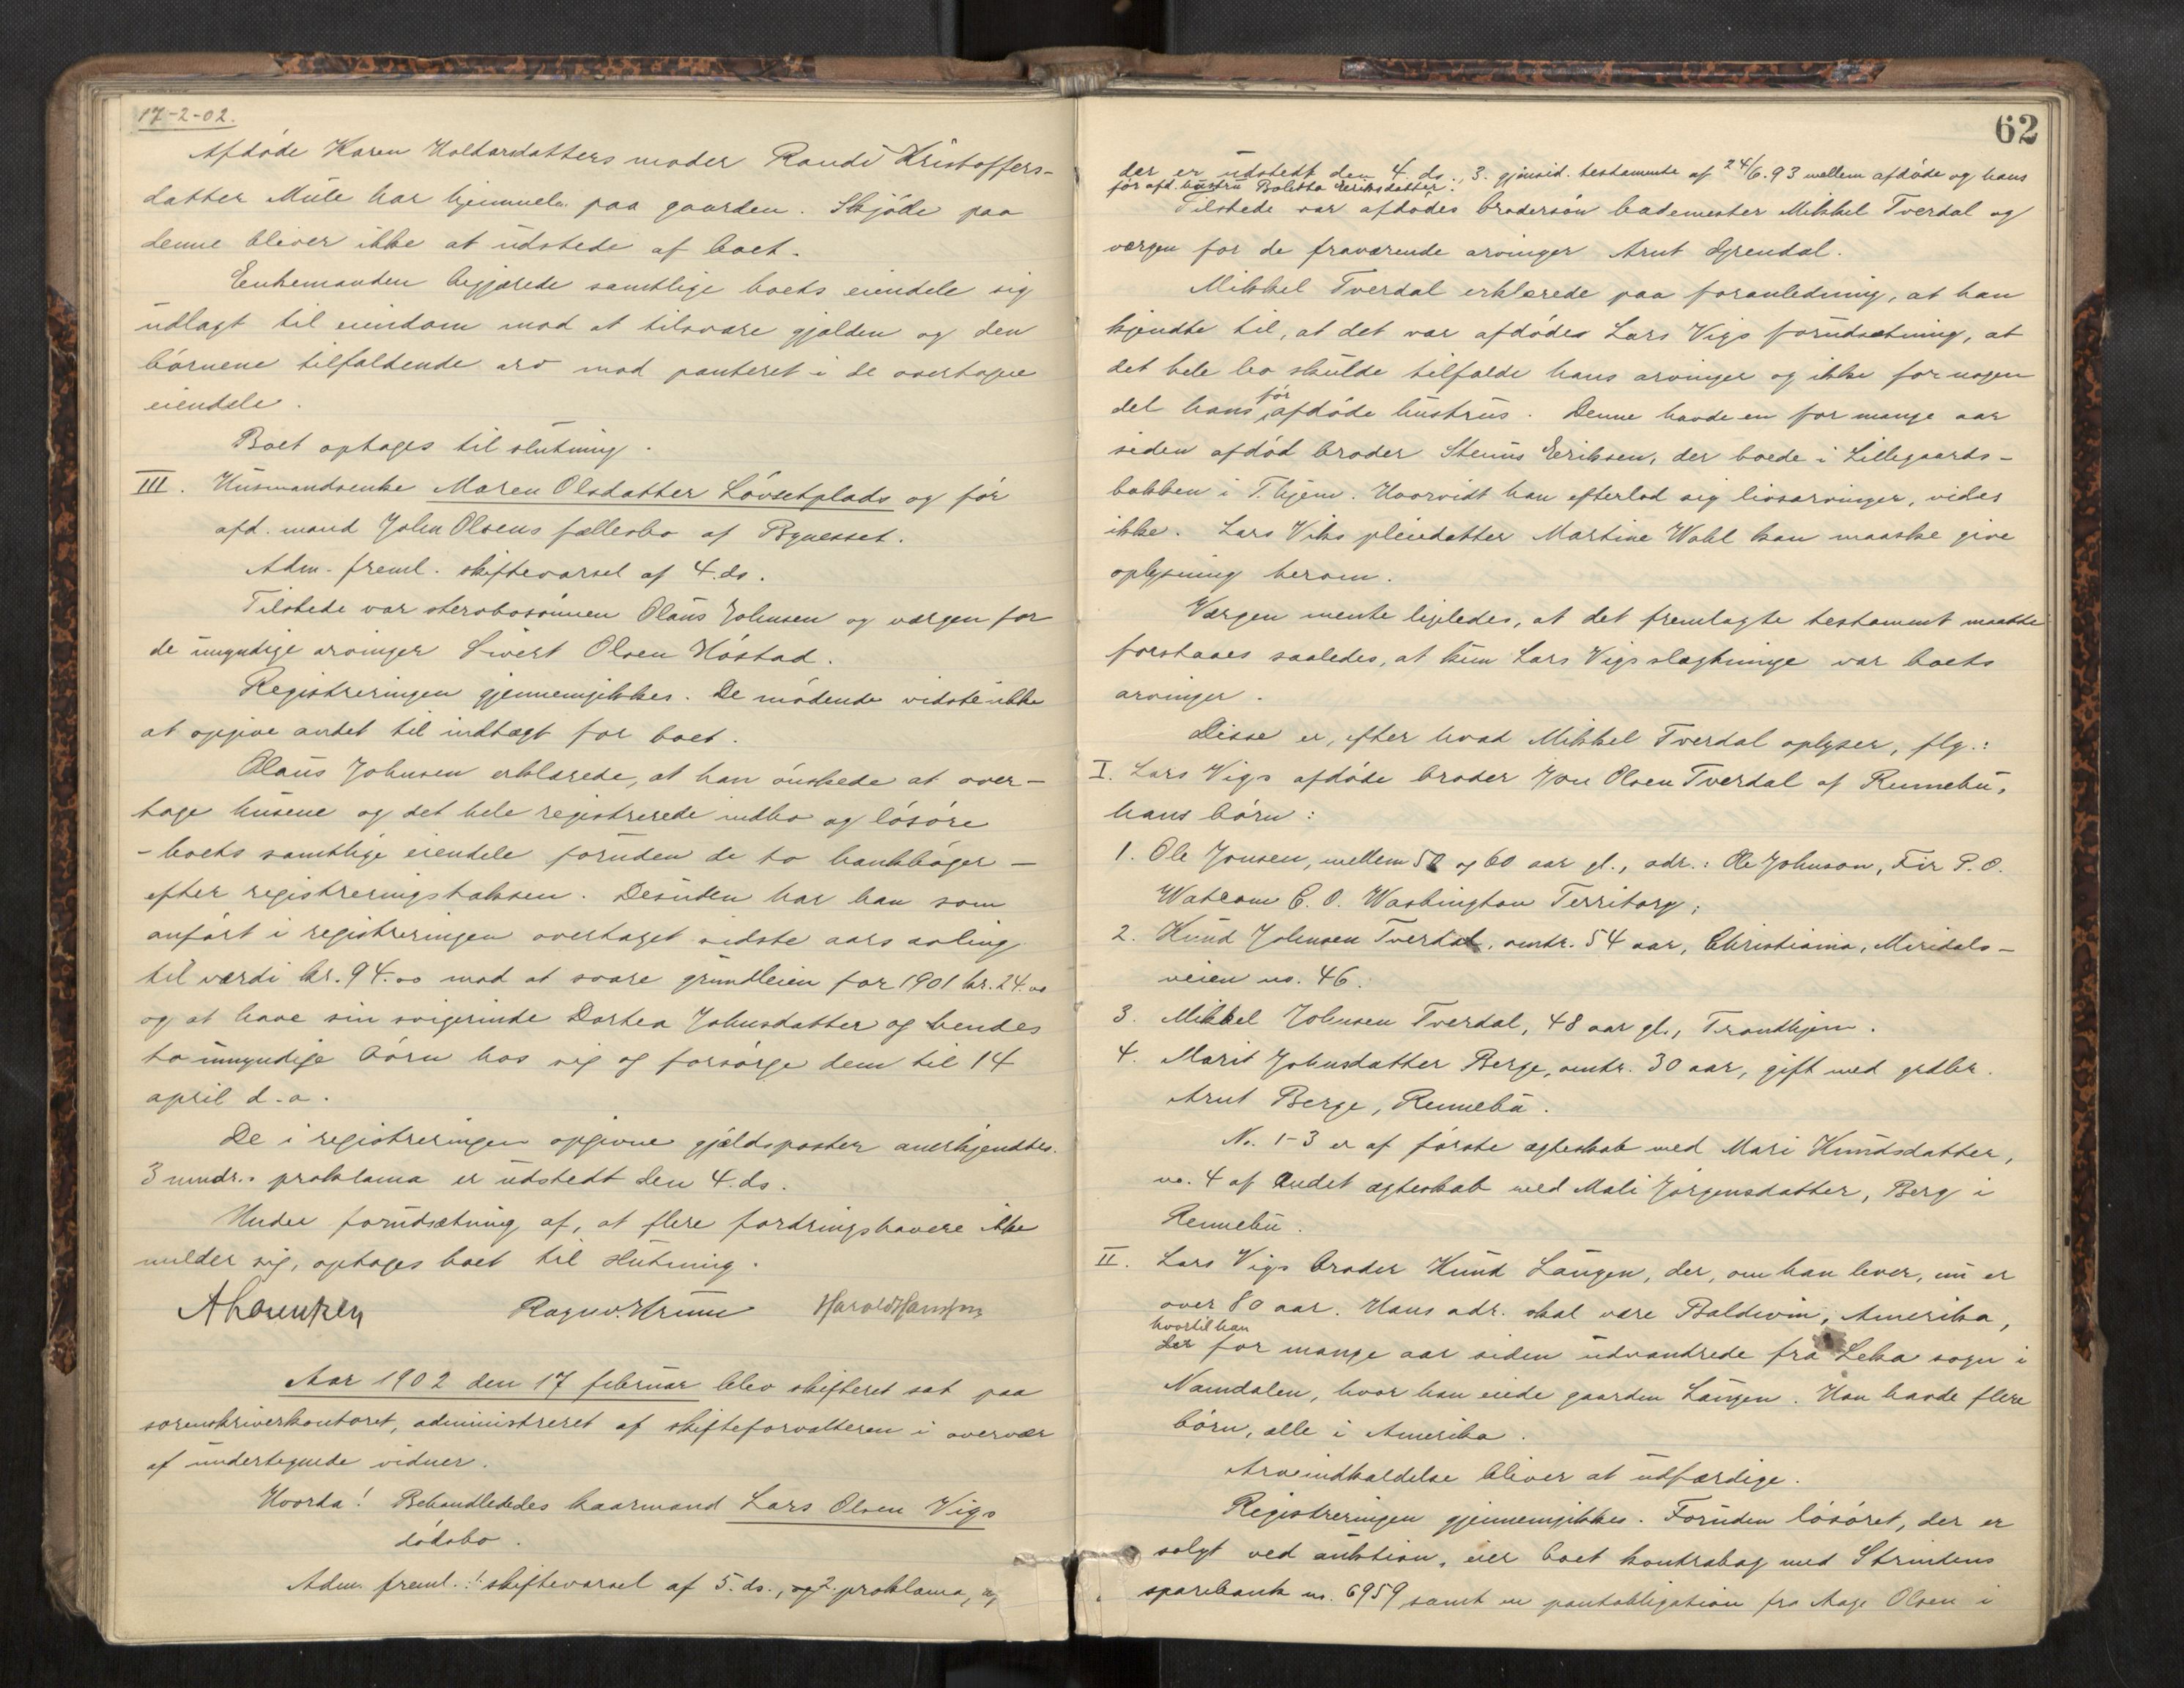 17-2-02.
Afdøde Karen Haldorsdatters moder Randi Kristoffers-
datter Mule har hjemmelen paa gaarden. Skjøde paa
denne bliver ikke at udstede af boet.
Enkemanden begjærede samtlige boets eiendele sig
udlagt til eiendom mod at tilsvare gjælden og den
børnene tilfaldende arv mod panteret i de overtagne
eiendele.
Boet optages til slutning.
III. Husmandsenke Maren Olsdatter Løvsetplads og før
afd. mand John Olsens fællesbo af Bynesset.
Adm. freml. skiftevarsel af 4. ds.
Tilstede var stervbosønnen Olaus Johnsen og værgen for
de umyndige arvinger Sivert Olsen Høstad.
Registreringen gjennemgikkes. De mødende vidste ikke
at opgive andet til indtægt for boet.
Olaus Johnsen erklærede, at han ønskede at over-
tage husene og det hele registrerede indbo og løsøre
- boets samtlige eiendele foruden de to bankbøger -
efter registreringstaksen. Desuden har han som
anført i registreringen overtaget sidste aars avling
til værdi kr. 94.00 mod at svare grundleien for 1901 kr. 24.00
og at have sin svigerinde Dortea Johnsdatter og hendes
to umyndige børn hos sig og forsørge dem til 14
april d. a.
De i registreringen opgivne gjældsposter anerkjendtes.
3 mndr.s proklama er udstedt den 4. ds.
Under forudsætning af, at flere fordringshavere ikke
melder sig, optages boet til slutning.
A Lorentzen Ragnv. Harald Hansen
Aar 1902 den 17 februar blev skifteret sat paa
sorenskriverkontoret, administreret af skifteforvalteren i overvær
af undertegnede vidner.
Hvorda! Behandledes kaarmand Lars Olsen Vigs
dødsbo.
Adm. freml. 1. skiftevarsel af 5. ds., og 2. proklama,
62
der er udstedt den 4. ds., 3. gjensid. testamente af 24/6.93 mellem afdøde og hans
før afd. hustru Boletta Eeriksdatter.
Tilstede var afdødes brodersøn bademester Mikkel Tverdal og
værgen for de fraværende arvinger Arnt Grendal.
Mikkel Tverdal erklærede paa foranledning, at han
kjendte til, at det var afdødes Lars Vigs forudsætning, at
det hele bo skulde tilfalde hans arvinger og ikke for nogen
del hans før afdøde hustrus. Denne havde en for mange aar
siden afdød broder Stenus Eeriksen, der boede i Lillegaards-
bakken i T.hjem. Hvorvidt han efterlod sig livsarvinger, vides
ikke. Lars Viks pleiedatter Martine Wahl kan maaske give
oplysning herom.
Værgen mente ligeledes, at det fremlagte testament maatte
forstaaes saaledes, at kun Lars Vigs slægtninge var boets
arvinger.
Disse er, efter hvad Mikkel Tverdal oplyser, flg.:
I. Lars Vigs afdøde broder Jon Olsen Tverdal af Rennebu,
hans børn:
1. Ole Jonsen, mellem 50 og 60 aar gl., adr.: Ole Johnson, Fir P.O.
Watcom C. O. Washington Territory;
2. Knud Johnsen Tverdal, omtr. 54 aar, Christiania, Maridals-
veien no. 46.
3. Mikkel Johnsen Tverdal, 48 aar gl., Trondhjem.
4. Marit Johnsdatter Berge, omtr. 30 aar, gift med grdbr.
Arnt Berge, Rennebu.
No. 1-3 er af første ægteskab med Mari Knudsdatter,
no. 4 af andet ægteskab med Mali Jørgensdatter, Berg i
Rennebu.
II. Lars Vigs broder Knud Laugen, der, om han lever, nu er
over 80 aar. Hans adr. skal være Baldwin, Amerika,
hvortil han
for mange aar siden udvandrede fra Leka sogn i
Namdalen, hvor han eiede gaarden Laugen. Han havde flere
børn, alle i Amerika.
Arveindkaldelse bliver at udfærdige.
Registreringen gjennemgikkes. Foruden løsøret, der er
solgt ved auktion, eier boet kontrabog med Strindens
sparebank no. 6959 samt en pantobligation fra Aage Olsen i